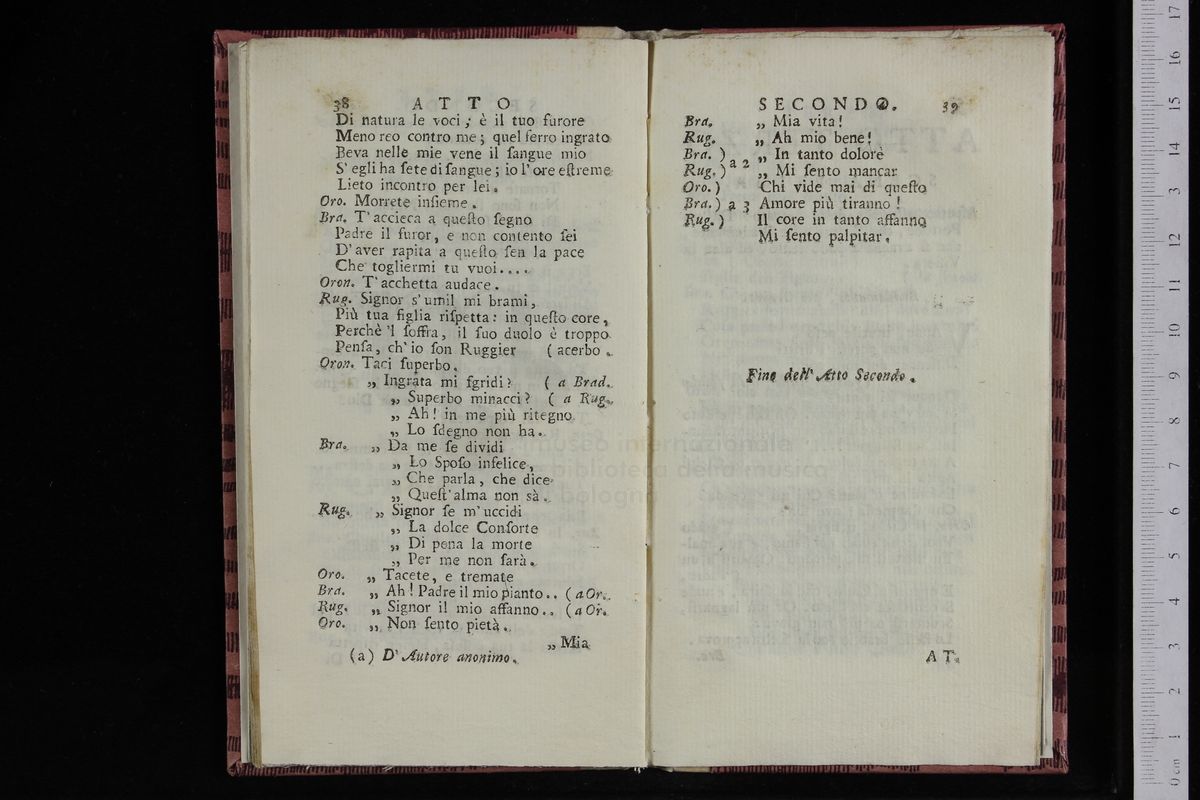 38 ATTO
Di natura le voci; è il tuo furore
Meno reo contro me; quel ferro ingrato
Beva nelle mie vene il ſangue mio
S' egli ha ſete di ſangue; io l' ore eſtreme
Lieto incontro per lei.
Oro. Morrete inſieme.
Bra. T' accieca a queſto ſegno
Padre il furor, e non contento ſei
D' aver rapita a queſto ſen la pace
Che togliermi tu vuoi....
Oron. T' acchetta audace.
Rug. Signor s' umil mi brami,
Più tua figlia riſpetta: in queſto core,
Perchè 'l ſoffra, il ſuo duolo è troppo
Penſa, ch' io ſon Ruggier ( acerbo.
Oron. Taci ſuperbo.
„ Ingrata mi ſgridi? ( a Brad.
„ Superbo minacci? ( a Rug.
„ Ah! in me più ritegno
„ Lo ſdegno non ha.
Bra. „ Da me ſe dividi
„ Lo Spoſo infelice,
„ Che parla, che dice
„ Queſt' alma non sà.
Rug. „ Signor ſe m' uccidi
„ La dolce Conſorte
„ Di pena la morte
„ Per me non ſarà.
Oro. „ Tacete, e tremate
Bra. „ Ah! Padre il mio pianto.. ( a Or.
Rug. „ Signor il mio affanno.. ( a Or.
Oro. „ Non ſento pietà.
„ Mia
(a) D' Autore anonimo.
SECONDO. 39
Bra. „ Mia vita!
Rug. „ Ah mio bene!
Bra. ) a 2 „ In tanto dolorè
Rug. ) „ Mi ſento mancar
Oro. ) Chi vide mai di queſto
Bra. ) a 3 Amore più tiranno!
Rug. ) Il core in tanto affanno
Mi ſento palpitar.
Fine dell' Atto Secondo.
AT-
museo internazionale
e biblioteca della musica
bologna
0 cm 1 2 3 4 5 6 7 8 9 10 11 12 13 14 15 16 17